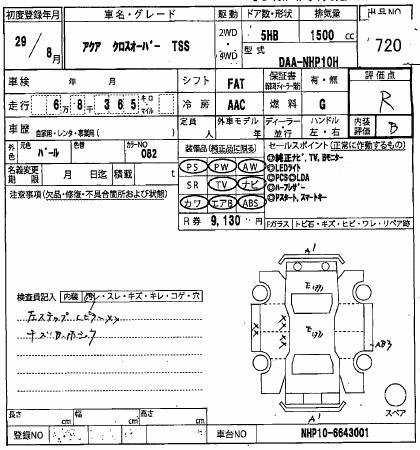 初度登録年月 車名・グレード 駆動 ドア数・形状 排気量 出品NO
29/8月 アクア クロスオーバー TSS 2WD・9WD 5HB 1500 cc 720
型式 DAA-NHP10H
車検 年 月 シフト FAT 保証書 有・無 評価点
走行 6万8千365 キロ マイル 冷房 AAC 燃料 G R
車歴 自家用・レンタ・事業用( ) 定員 人 外車モデル 年 ディーラー・並行 ハンドル 左・右 内装評価 B
外色 元色 パール 色替 カラーNO 082
装備品(純正品に限る) セールスポイント(正常に作動するもの)
名義変更期限 月 日迄 積載 t
PS PW AW ◎純正ナビ、TV、Bモニター
SR TV ナビ ◎LEDライト
カワ エアB ABS ◎PCS◎LDA
◎ハーフレザー
◎Pスタート、スマートキー
注意事項(欠品・修復・不具合箇所および状態)
R券 9,130 円
Fガラス トビ石・キズ・ヒビ・ワレ・リペア跡
A1
検査員記入 内装 汚レ・スレ・キズ・キレ・コゲ・穴
左ステップ Lピラーメメ
AB3
スペア
A1
長さ cm 幅 cm 高さ cm
登録NO 車台NO NHP10-6643001